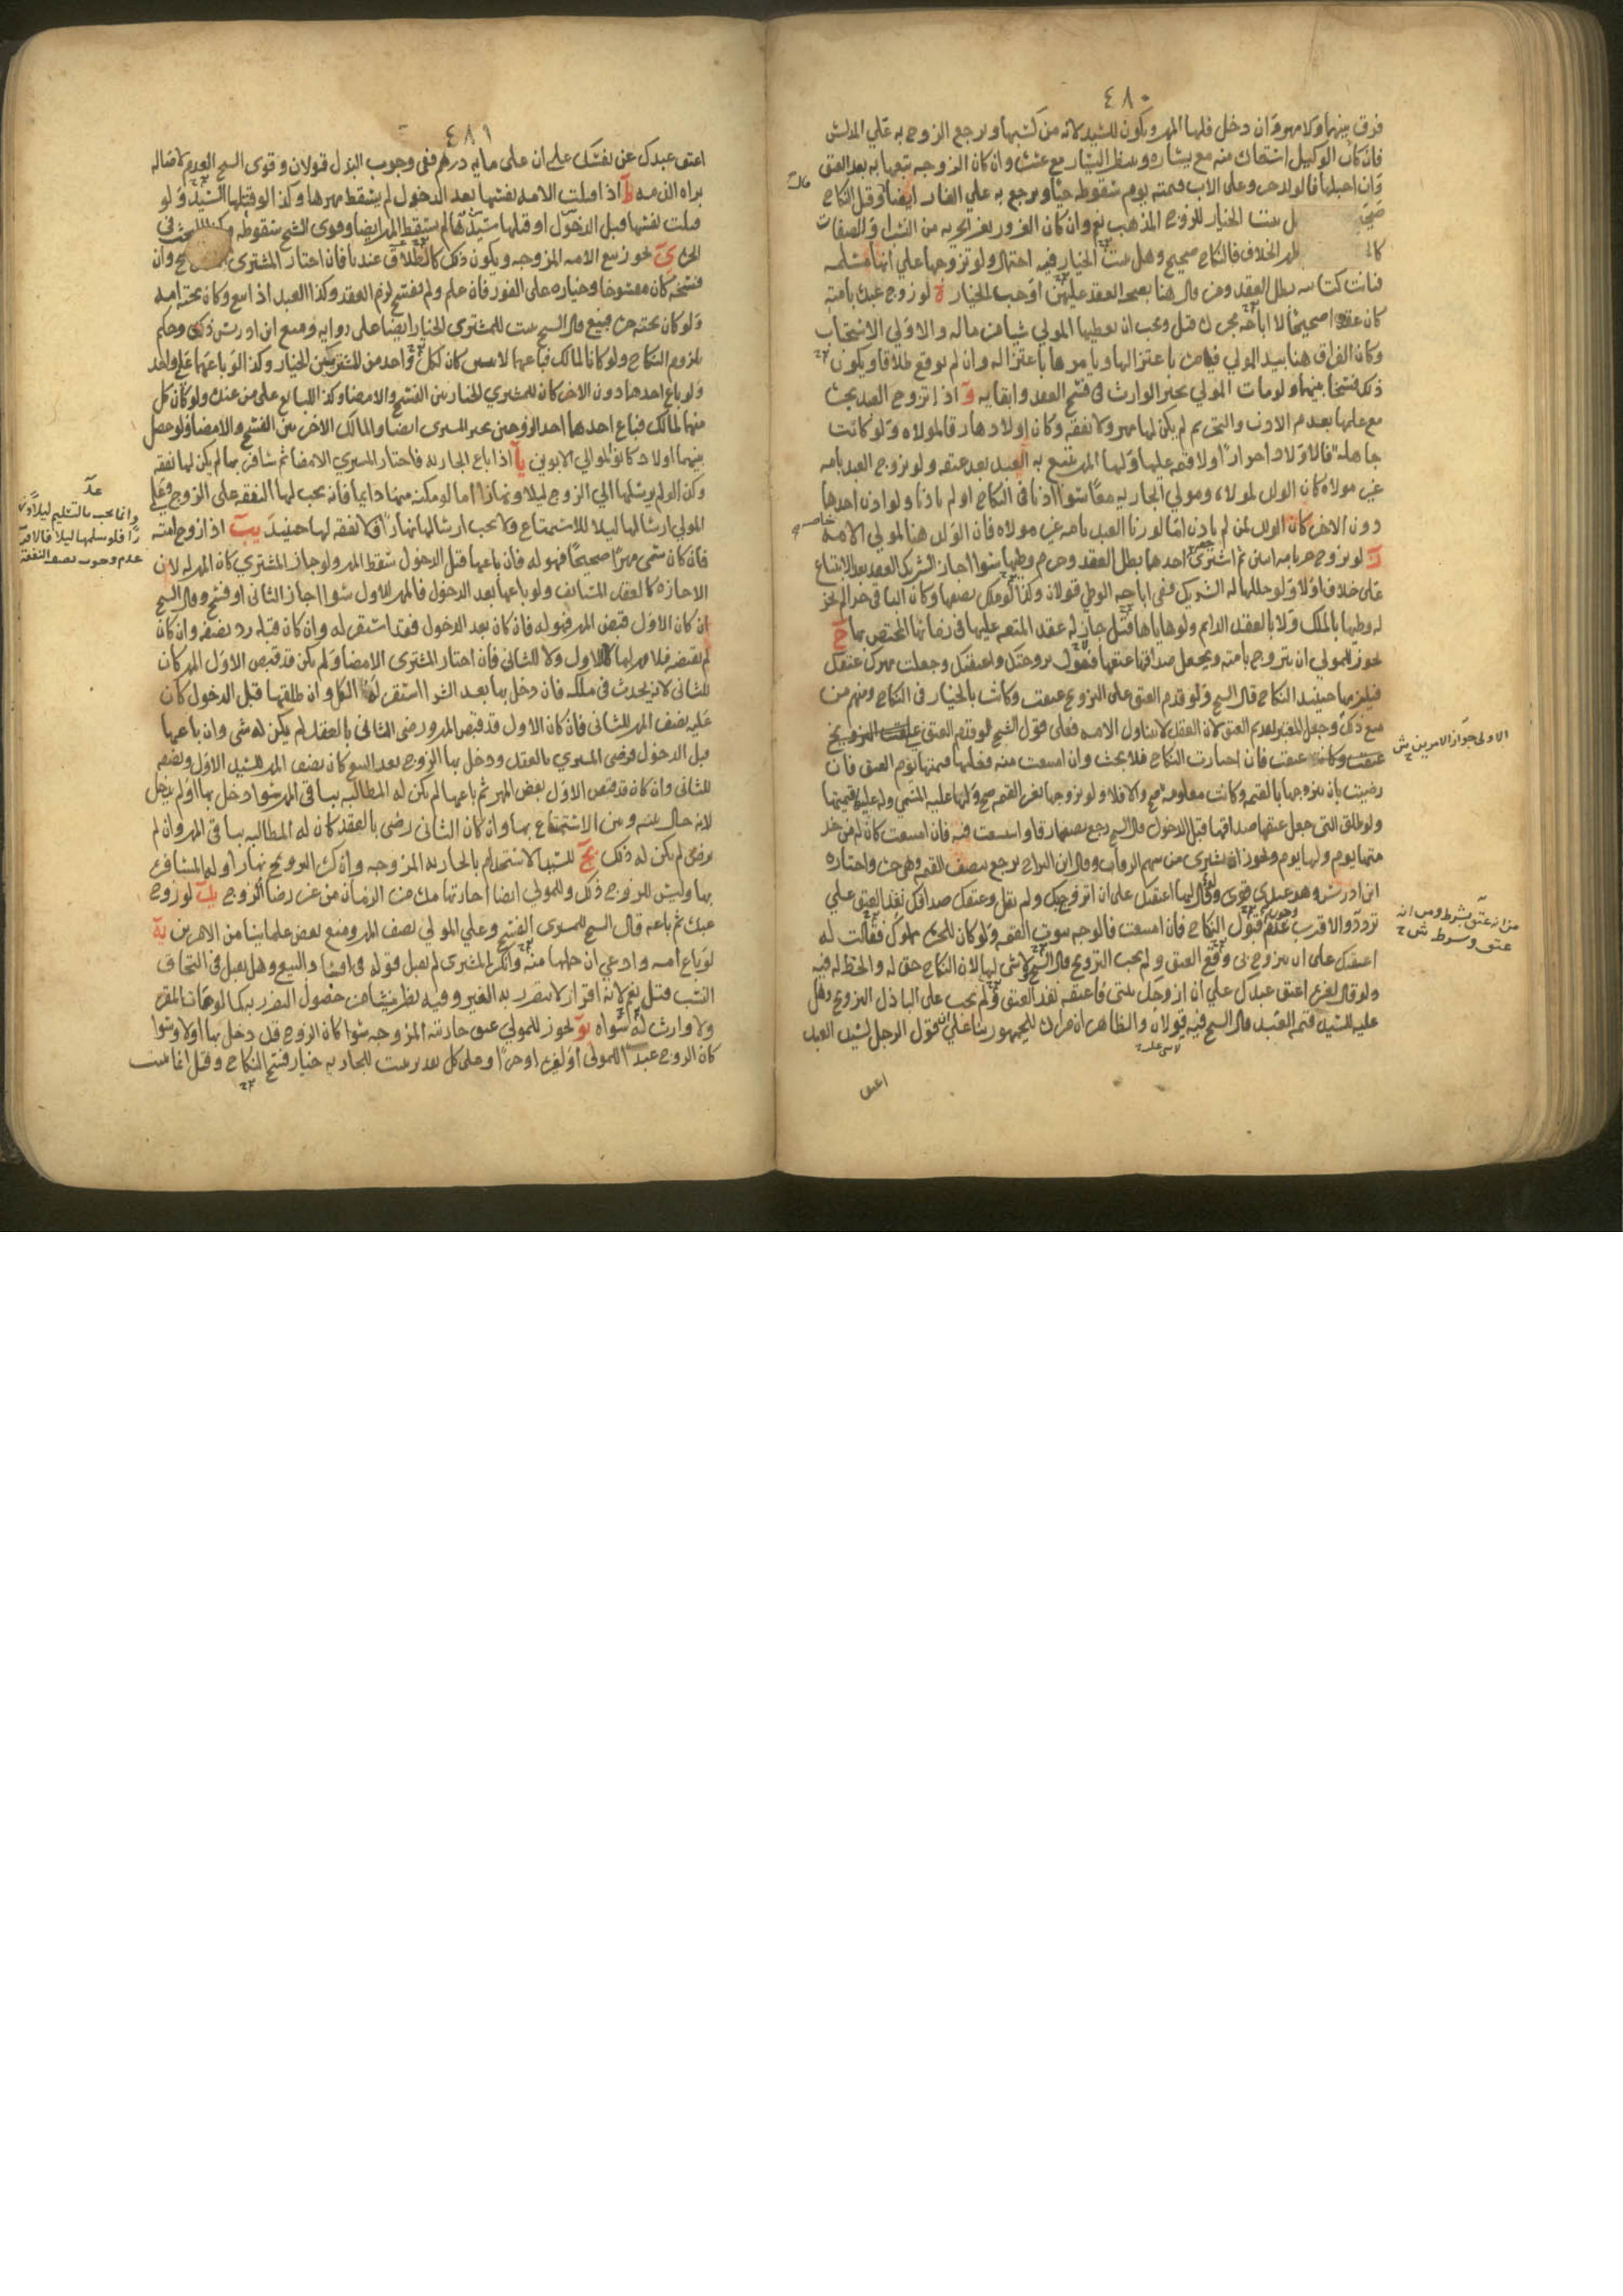 ٤٨٠
فرق بينهما ولا مهر وان دخل فلها المهر ويكون للسيد لانه من كسبها ويرجع الزوج به علي المدلس
فان كان الوكيل استعاد منه مع يساره وينتظر اليسار مع عسره وان كان الزوجه يتبعها به بعد العتق
وان احبلها فالولد حر وعلى الاب قيمته يوم سقوطه حيا ويرجع به علي الغار ايضا وقبل النكاح
الخيار للزوج المذهب نعم وان كان الغرور بغير الحريه من النسب او الصفات
ظهر الخلاف فالنكاح صحيح وهل يثبت الخيار فيه احتمال ولو تزوجها علي انها مسلمه
فبانت كتابيه بطل العقد ومن قال هنا بصحه العقد عليهن اوجب الخيار ة لو زوج عبده بامته
كان عقدا صحيحا لا اباحه يجب ان يعطيها المولي شيا من ماله والاولي الاستحباب
وكان الفراق هنا بيد المولي فيامره باعتزالها ويامرها باعتزاله وان لم يوقع طلاقا ويكون
ذلك فسخا بينهما ولو مات المولي تخير الوارث في فسخ العقد وابقايه و اذا تزوج العبد بحره
مع علمها بعدم الاذن والتحريم لم يكن لها مهر ولا نفقه وكان اولادها رقا لمولاه ولو كانت
جاهله فالاولاد احرار ولا قيمه عليها ولها المهر تتبع به العبد بعد عتقه ولو تزوج العبد بامه
غير مولاه كان الولد لمولاه ومولي الجاريه معا سوا اذنا في النكاح او لم ياذنا ولو اذن احدهما
دون الاخر كان الولد لمن لم ياذن اما لو زنا العبد بامه غير مولاه فان الولد هنا لمولي الامه
ز لو تزوج حر بامه اثنين ثم اشترى احدهما بطل العقد وحرم وطيها سوا اجاز الشريك العقد بعد الابتياع
على خلاف اولا ولو حللها له الشريك ففي اباحه الوطي قولان وكذا لو ملك نصفها وكان الباقي حرا لم يجز
له وطيها بالملك ولا بالعقد الدايم ولو هاياها قيل جاز له عقد المتعه عليها في زمانها المختص بها ح
يجوز للمولي ان يتزوج بامته ويجعل صداقها عتقها فيقول تزوجتك واعتقتك وجعلت مهرك عتقك
فيلزمها حينيذ النكاح قال الشيخ ولو قدم العتق على التزويج عتقت وكانت بالخيار في النكاح ومنهم من
منع ذلك وجعل المعتبر تقديم العتق لان العقد لا يتناول الامه فعلى قول الشيخ لو قدم العتق
عتقت فان اختارت النكاح فلا بحث وان امتنعت منه فعليها قيمتها يوم العتق فان
رضيت بان يتزوجها بالقيمه وكانت معلومه صح والا فلا ولو تزوجها بغير القيمه صح ولها عليه المسمي وله عليها قيمتها
ولو طلق التي جعل عتقها صداقها قبل الدخول قال الشيخ رجع نصفها رقا واستسعت فيه فان امتنعت كان له من خدمتها
يوم ولها يوم ويجوز ان يشترى من سهم الرقاب وقال ابن البراج يرجع بنصف القيمه وهي حره واختاره
ابن ادريس وهو عندي قوي وقال لها اعتقتك على ان اتزوج بك ولم يقل وعتقك صداقك نفذ العتق علي
تردد والاقرب عدم قبول النكاح فان امتنعت فالوجه ثبوت القيمه ولو كان للحره مملوك فقالت له
اعتقتك على ان تتزوج بي وقع العتق ولم يجب التزويج قال الشيخ ولا شى لها لان النكاح حق له والحظ له فيه
ولو قال لغيره اعتق عبدك علي ان ازوجك بنتى فاعتقه نفذ العتق ولم يجب على الباذل التزويج وهل
عليه للسيد قيمه العبد قال الشيخ فيه قولان والظاهر ان مراده للجمهور بنا على قول الرجل لسيد العبد
اعتق
الاولى جواز الامرين ش
٤٨١
اعتق عبدك عن نفسك علي ان على مايه درهم ففي وجوب البذل قولان وقوى الشيخ العدم لاصاله
براه الذمه ط اذا قبلت الامه نفسها بعد الدخول لم يسقط مهرها وكذا لو قتلها السيد ولو
قتلت نفسها قبل الدخول او قتلها سيدها لم يسقط المهر ايضا وقوى الشيخ سقوطه وكذا البحث في
الحره ي يجوز بيع الامه المزوجه ويكون ذلك كالطلاق عندنا فان اختار المشترى وان
فسخه كان مفسوخا وخياره على الفور فان علم ولم يفسخ لزم العقد وكذا العبد اذا بيع وكان تحته امه
ولو كان تحته حره فبيع قال الشيخ يثبت للمشترى الخيار ايضا على روايه ومنع ابن ادريس ذلك وحكم
بلزوم النكاح ولو كانا لمالك فباعهما لاثنين كان لكل واحد من المشتريين الخيار وكذا لو باعهما على واحد
ولو باع احدهما دون الاخر كان للمشتري الخيار بين الفسخ والامضا وكذا البايع على من عنده ولو كان كل
منهما لمالك فباع احدهما احد الزوجين تخير المشترى ايضا والمالك الاخر بين الفسخ والامضا ولو حصل
بينهما اولاد كانوا لموالي الابوين يا اذا باع الجاريه فاختار المشتري الامضا ثم سافر بها لم يكن لها نفقه
وكذا لو لم يرسلها الي الزوج ليلا ونهارا اما لو مكنه منها دايما فانه يجب لها النفقه على الزوج وعلي
المولي ارسالها ليلا للاستمتاع ولا يجب ارسالها نهارا ولا نفقه لها حينيذ يب اذا زوج امته
فان كان سمى مهرا صحيحا فهو له فان باعها قبل الدخول سقط المهر ولو اجاز المشتري كان المهر له لان
الاجازه كالعقد المستانف ولو باعها بعد الدخول فالمهر للاول سوا اجاز الثانى او فسخ وقال الشيخ
ان كان الاول قبض المهر فهو له فان كان بعد الدخول فقد استقر له وان كان قبله رد نصفه وان كان
لم يقبضه فلا مهر لها لا للاول ولا للثانى فان اختار المشترى الامضا ولم يكن قد قبض الاول المهر كان
للثانى لانه يحدث في ملكه فان دخل بها بعد الشرا استقر له الكل وان طلقها قبل الدخول كان
عليه نصف المهر للثانى فان كان الاول قد قبض المهر ورضى الثانى بالعقد لم يكن له شى وان باعها
قبل الدخول فرضى المشتري بالعقد ودخل بها الزوج بعد البيع كان نصف المهر للسيد الاول ونصفه
للثانى وان كان قد قبض الاول بعض المهر ثم باعها لم يكن له المطالبه بباقى المهر سوا دخل بها او لم يدخل
لانه حال بينه وبين الاستمتاع بها وان كان الثانى رضى بالعقد كان له المطالبه بباقى المهر وان لم
يرض لم يكن له ذلك يج للسيد الاستخدام بالجاريه المزوجه وان كره الزوج نهارا وله المسافره
بها وليس للزوج ذلك وللمولي ايضا اجارتها مده من الزمان من غير رضا الزوج يد لو زوج
عبده ثم باعه قال الشيخ للمشترى الفسخ وعلي المولي نصف المهر ومنع بعض علماينا من الامرين يه
لو باع امه وادعي ان حملها منه وانكر المشترى لم يقبل قوله في افساد البيع وهل يقبل في التحاق
النسب قيل نعم لانه اقرار لا يتضرر به الغير وفيه نظر ينشا من حصول الضرر به كما لو مات المقر
ولا وارث له سواه يو يجوز للمولي عتق جاريته المزوجه سوا كان الزوج قد دخل بها اولا وسوا
كان الزوج عبدا للمولي او لغيره او حرا وعلى كل تقدير يثبت للجاريه خيار فسخ النكاح وقيل انما يثبت
وانما يجب بالتسليم ليلا ونها
را فلو سلمها ليلا فالاقرب
عدم وجوب نصف النفقه